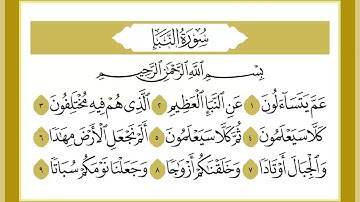 سُورَةُ النَّبَإِ
بِسْمِ اللَّهِ الرَّحْمَٰنِ الرَّحِيمِ
عَمَّ يَتَسَاءَلُونَ ١ عَنِ النَّبَإِ الْعَظِيمِ ٢ الَّذِي هُمْ فِيهِ مُخْتَلِفُونَ ٣
كَلَّا سَيَعْلَمُونَ ٤ ثُمَّ كَلَّا سَيَعْلَمُونَ ٥ أَلَمْ نَجْعَلِ الْأَرْضَ مِهَٰدًا ٦
وَالْجِبَالَ أَوْتَادًا ٧ وَخَلَقْنَٰكُمْ أَزْوَٰجًا ٨ وَجَعَلْنَا نَوْمَكُمْ سُبَاتًا ٩